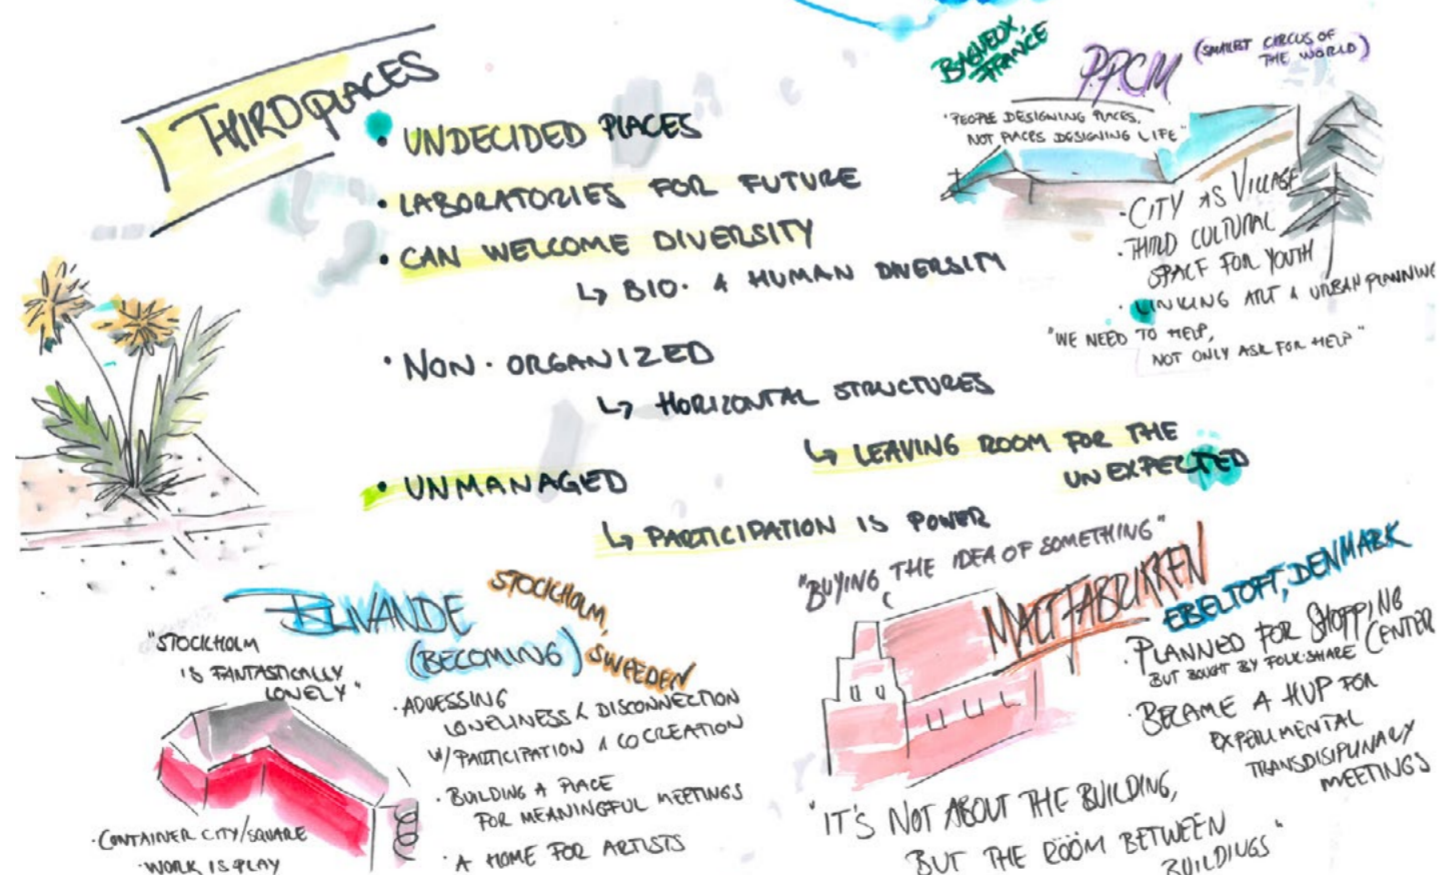 THIRD PLACES
• UNDECIDED PLACES
• LABORATORIES FOR FUTURE
• CAN WELCOME DIVERSITY
↳ BIO- & HUMAN DIVERSITY
• NON-ORGANIZED
↳ HORIZONTAL STRUCTURES
↳ LEAVING ROOM FOR THE
UNEXPECTED
• UNMANAGED
↳ PARTICIPATION IS POWER
BAGNEUX,
FRANCE
PPCM
(SMALLEST CIRCUS OF
THE WORLD)
"PEOPLE DESIGNING PLACES,
NOT PLACES DESIGNING LIFE"
• CITY AS VILLAGE
• THIRD CULTURAL
SPACE FOR YOUTH
• LINKING ART & URBAN PLANNING
"WE NEED TO HELP,
NOT ONLY ASK FOR HELP"
BLIVANDE
(BECOMING)
STOCKHOLM,
SWEEDEN
"STOCKHOLM
IS FANTASTICALLY
LONELY"
• ADDESSING
LONELINESS & DISCONNECTION
W/ PARTICIPATION & COCREATION
• BUILDING A PLACE
FOR MEANINGFUL MEETINGS
• A HOME FOR ARTISTS
• CONTAINER CITY/SQUARE
• WORK IS PLAY
"BUYING THE IDEA OF SOMETHING"
MALTFABRIKKEN
EBELTOFT, DENMARK
• PLANNED FOR SHOPPING
CENTER
BUT BOUGHT BY FOLK-SHARE
• BECAME A HUP FOR
EXPERIMENTAL
TRANSDISIPLINARY
MEETINGS
"IT'S NOT ABOUT THE BUILDING,
BUT THE RÖÖM BETWEEN
BUILDINGS"